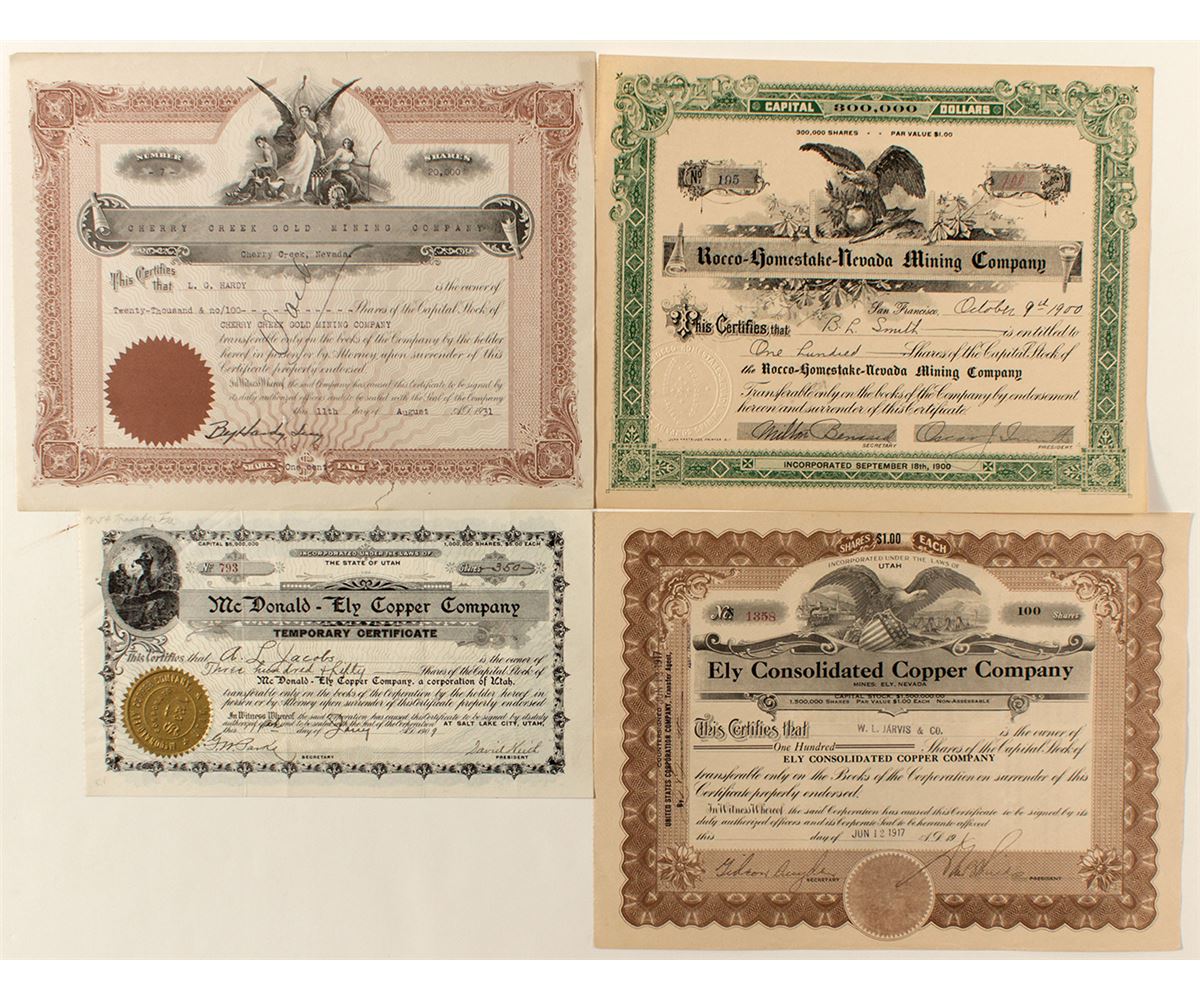 NUMBER
- 7 -
SHARES
20,000
CHERRY CREEK GOLD MINING COMPANY
Cherry Creek, Nevada.
This Certifies
that L. G. HARDY is the owner of
Twenty-Thousand & no/100 - - - - - - - - Shares of the Capital Stock of
CHERRY CREEK GOLD MINING COMPANY
transferable only on the books of the Company by the holder
hereof in person or by Attorney upon surrender of this
Certificate properly endorsed.
In Witness Whereof, the said Company has caused this Certificate to be signed by
its duly authorized officers and to be sealed with the Seal of the Company
this 11th day of August A.D. 1931
SHARES One cent EACH
CAPITAL 300,000 DOLLARS
300,000 SHARES - - PAR VALUE $1.00
No 195
Rocco-Homestake-Nevada Mining Company
San Francisco, October 9th 1900
This Certifies that B. L. Smith is entitled to
One hundred Shares of the Capital Stock of
the Rocco-Homestake-Nevada Mining Company
Transferable only on the books of the Company by endorsement
hereon and surrender of this Certificate
SECRETARY
PRESIDENT
INCORPORATED SEPTEMBER 18th, 1900
CAPITAL $5,000,000
1,000,000 SHARES, $5.00 EACH
INCORPORATED UNDER THE LAWS OF
THE STATE OF UTAH
No 793
Shares 350
McDonald - Ely Copper Company
TEMPORARY CERTIFICATE
This Certifies that A. L. Jacobs is the owner of
Three hundred & fifty Shares of the Capital Stock of
McDonald-Ely Copper Company, a corporation of Utah.
transferable only on the books of the Corporation by the holder hereof in
person or by Attorney upon surrender of this Certificate properly endorsed.
In Witness Whereof, the said Corporation has caused this Certificate to be signed by its duly
authorized officers and to be sealed with the Seal of the Corporation AT SALT LAKE CITY, UTAH,
this day of A.D. 1909
David Keith
SECRETARY
PRESIDENT
SHARES $1.00 EACH
INCORPORATED UNDER THE LAWS OF
UTAH
No 1358
100 Shares
Ely Consolidated Copper Company
MINES: ELY, NEVADA
CAPITAL STOCK, $1,500,000.00
1,500,000 SHARES PAR VALUE $1.00 EACH NON-ASSESSABLE
This Certifies that W. L. JARVIS & CO. is the owner of
One Hundred Shares of the Capital Stock of
ELY CONSOLIDATED COPPER COMPANY
transferable only on the Books of the Corporation on surrender of this
Certificate properly endorsed.
In Witness Whereof, the said Corporation has caused this Certificate to be signed by its
duly authorized officers and its Corporate Seal to be hereunto affixed
this day of JUN 12 1917 A.D. 19
SECRETARY
PRESIDENT
UNITED STATES CORPORATION COMPANY, Transfer Agent.
By